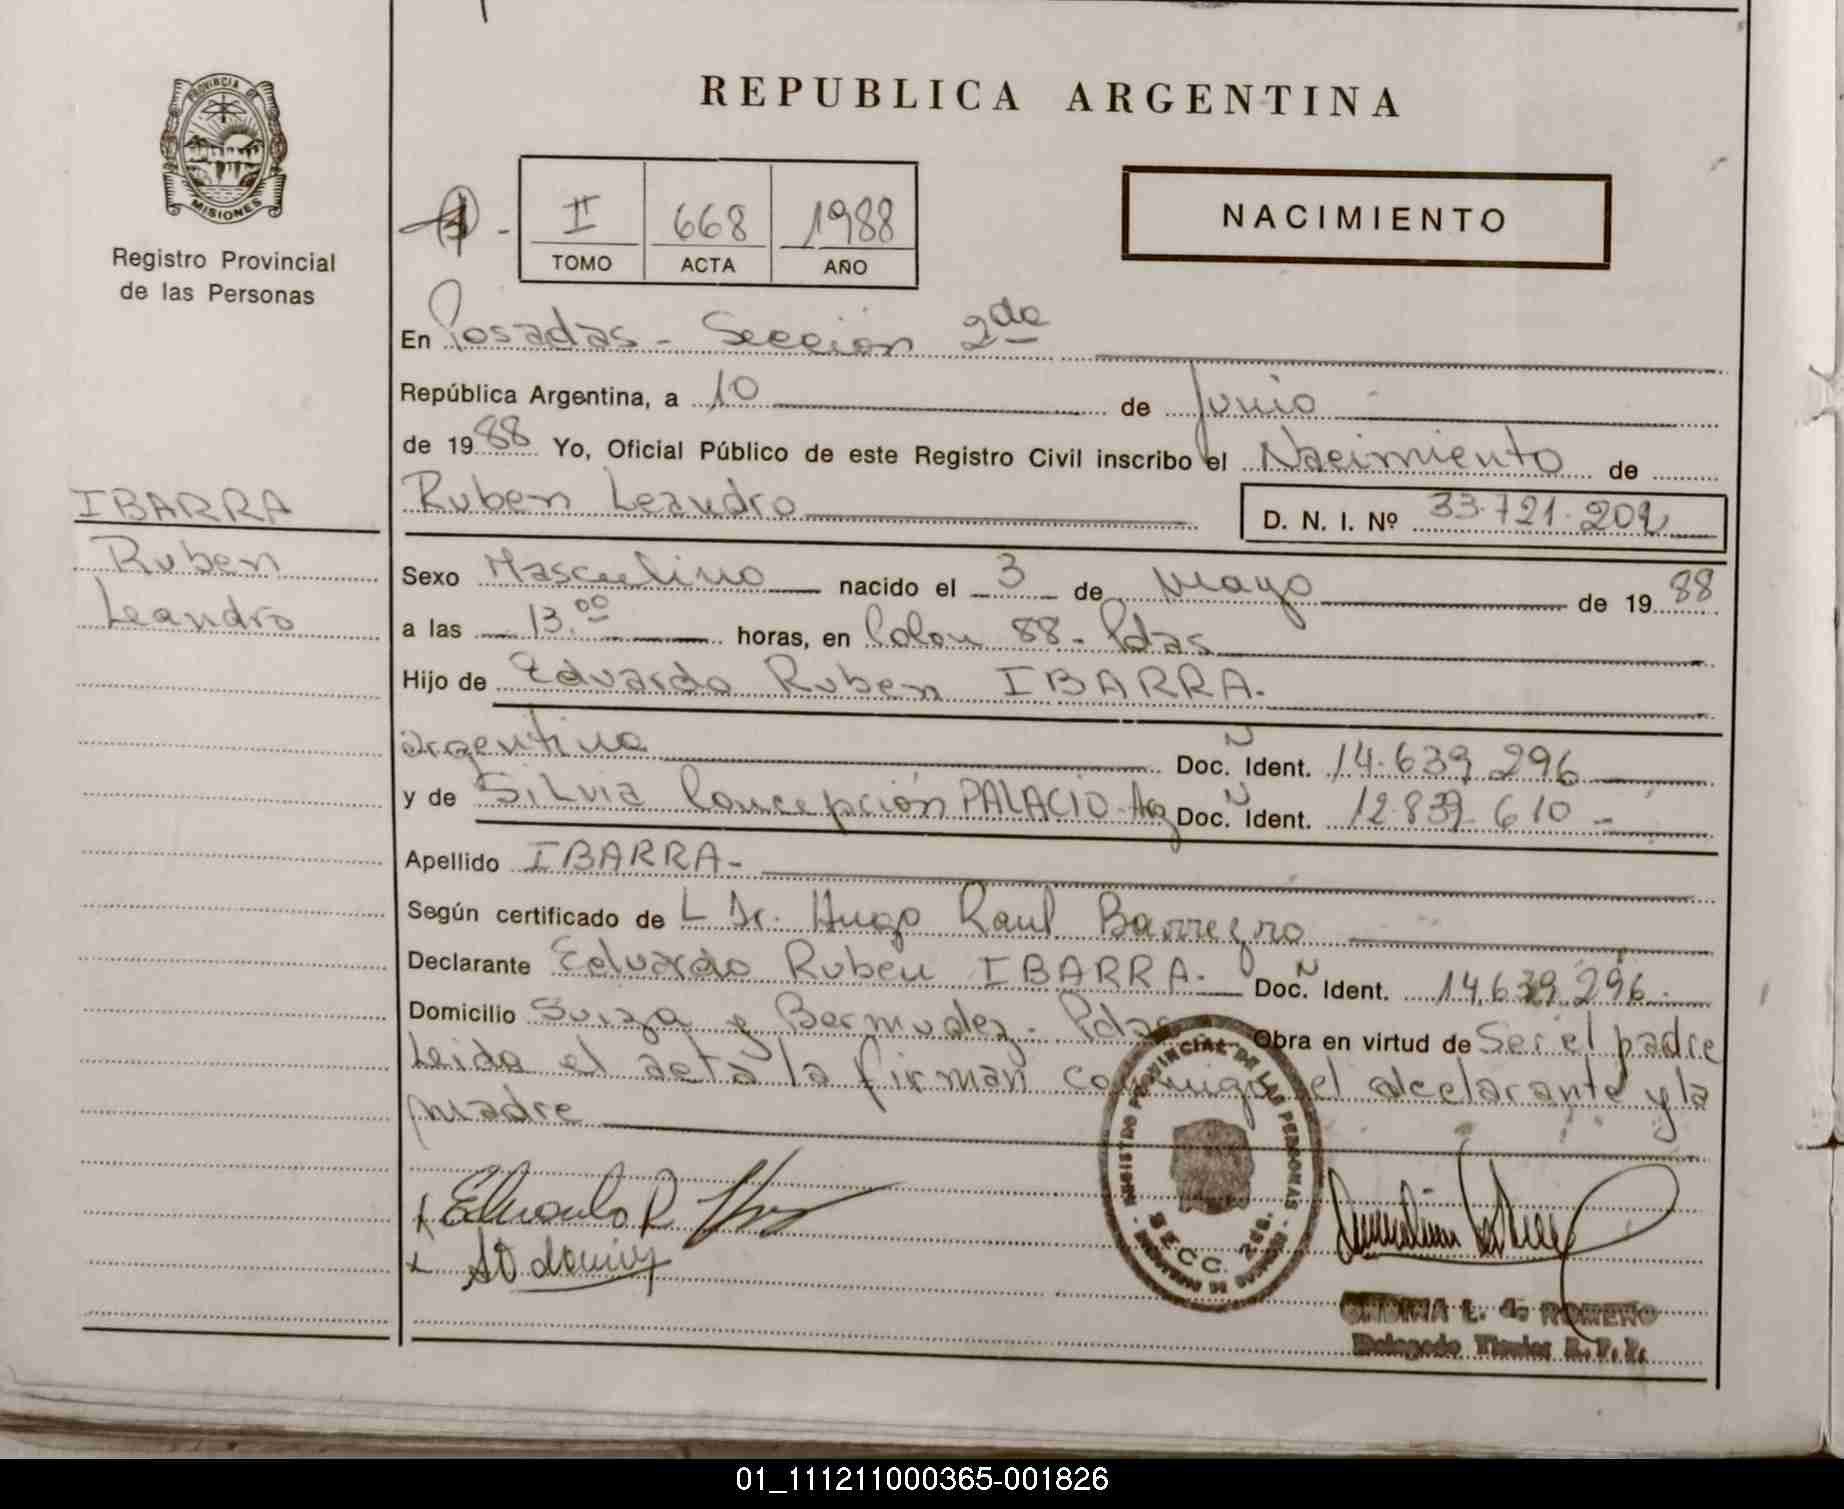 PROVINCIA DE
MISIONES
Registro Provincial
de las Personas
IBARRA
Ruben
Leandro
REPUBLICA ARGENTINA
II 668 1988
TOMO ACTA AÑO
NACIMIENTO
En Posadas - Sección 2da
República Argentina, a 10 de Junio
de 1988 Yo, Oficial Público de este Registro Civil inscribo el Nacimiento de
Ruben Leandro D. N. I. Nº 33.721.202
Sexo Masculino nacido el 3 de Mayo de 1988
a las 13.00 horas, en Colon 88 - Pdas
Hijo de Eduardo Ruben IBARRA.
argentino Doc. Ident. 14.639.296
y de Silvia Concepción PALACIO Arg Doc. Ident. 12.839.610 -
Apellido IBARRA -
Según certificado de L Dr. Hugo Raul Barreyro
Declarante Eduardo Ruben IBARRA. Doc. Ident. 14.639.296.
Domicilio Suiza y Bermudez. Pdas Obra en virtud de Ser el padre
Leida el acta la firman conmigo el declarante y la
madre
REGISTRO PROVINCIAL DE LAS PERSONAS
SECC. 2da.
Eduardo R
L. de ROMERO
Delegado Titular R. P. P.
01_111211000365-001826